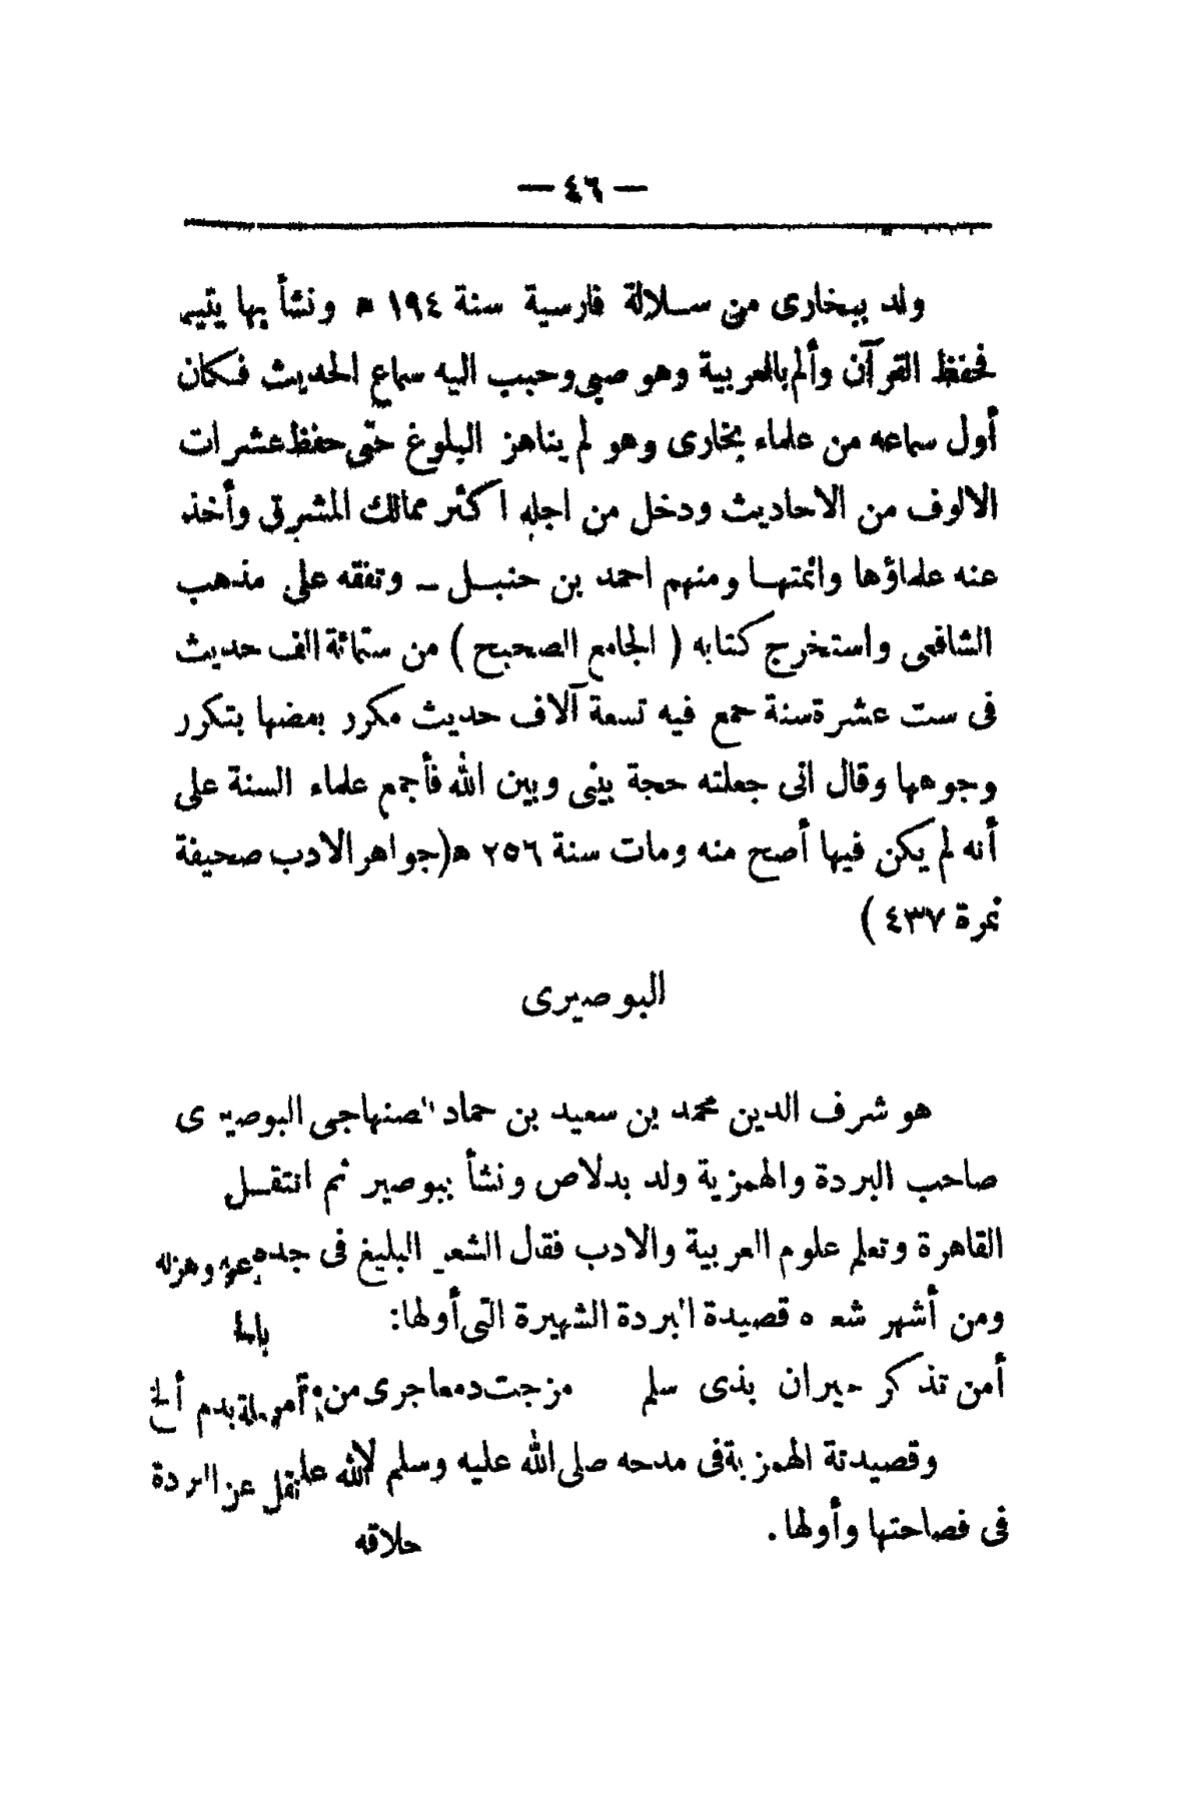 — ٤٦ —
ولد ببخارى من سلالة فارسية سنة ١٩٤ ه ونشأ بها يتيم
فحفظ القرآن وألم بالعربية وهو صبي وحبب اليه سماع الحديث فكان
أول سماعه من علماء بخارى وهو لم يناهز البلوغ حتى حفظ عشرات
الالوف من الاحاديث ودخل من اجله اكثر ممالك المشرق وأخذ
عنه علماؤها وائمتها ومنهم احمد بن حنبل ــ وتفقه على مذهب
الشافعى واستخرج كتابه ( الجامع الصحيح ) من ستمائة الف حديث
فى ست عشرة سنة جمع فيه تسعة آلاف حديث مكرر بعضها بتكرر
وجوهها وقال انى جعلته حجة بينى وبين الله فأجمع علماء السنة على
أنه لم يكن فيها أصح منه ومات سنة ٢٥٦ ه (جواهر الادب صحيفة
نمرة ٤٣٧ )
البوصيرى
هو شرف الدين محمد بن سعيد بن حماد الصنهاجى البوصيرى
صاحب البردة والهمزية ولد بدلاص ونشأ ببوصير ثم انتقل
القاهرة وتعلم علوم العربية والادب فقال الشعر البليغ فى جده وهزله
ومن أشهر شعره قصيدة البردة الشهيرة التى أولها:
أمن تذكر جيران بذى سلم مزجت دمعا جرى من بدم ألخ
وقصيدتة الهمزية فى مدحه صلى الله عليه وسلم تقل عن البردة
فى فصاحتها وأولها .